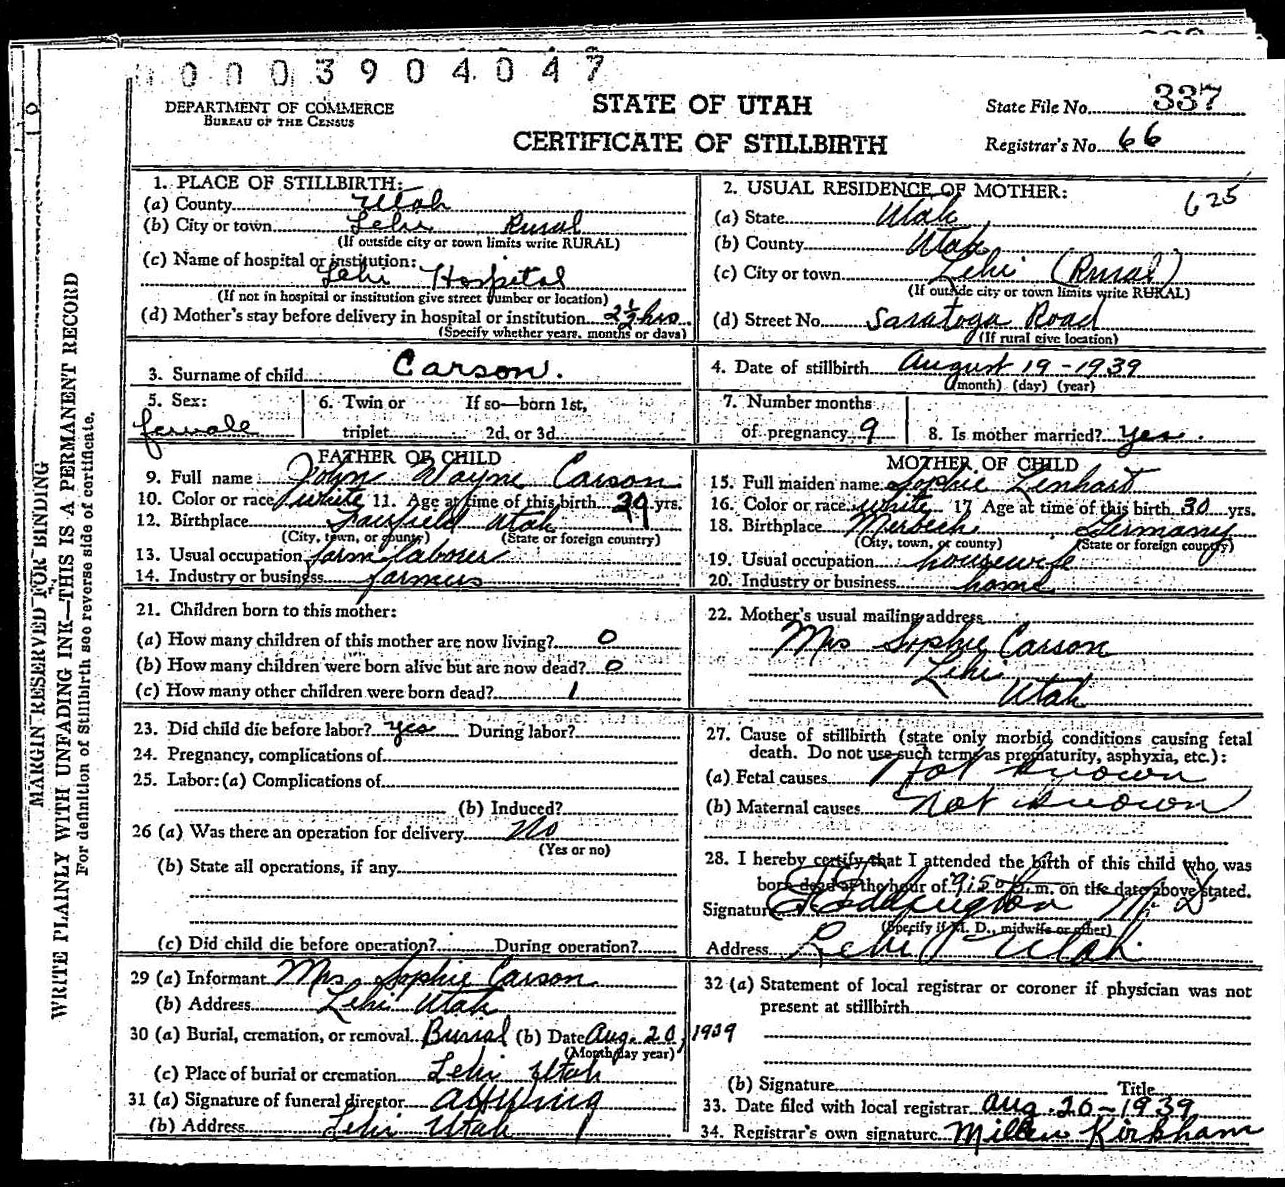 0 0 0 0 3 9 0 4 0 4 7
DEPARTMENT OF COMMERCE
BUREAU OF THE CENSUS
STATE OF UTAH
CERTIFICATE OF STILLBIRTH
State File No. 337
Registrar's No. 66
1. PLACE OF STILLBIRTH:
(a) County Utah
(b) City or town Lehi Rural
(If outside city or town limits write RURAL)
(c) Name of hospital or institution:
Lehi Hospital
(If not in hospital or institution give street number or location)
(d) Mother's stay before delivery in hospital or institution 2½ hrs
(Specify whether years, months or days)
2. USUAL RESIDENCE OF MOTHER:
625
(a) State Utah
(b) County Utah
(c) City or town Lehi (Rural)
(If outside city or town limits write RURAL)
(d) Street No. Saratoga Road
(If rural give location)
3. Surname of child Carson.
4. Date of stillbirth August 19-1939
(month) (day) (year)
5. Sex:
female
6. Twin or If so—born 1st,
triplet 2d, or 3d
7. Number months
of pregnancy 9
8. Is mother married? yes.
FATHER OF CHILD
9. Full name John Wayne Carson
10. Color or race white 11. Age at time of this birth 39 yrs.
12. Birthplace Fairfield Utah
(City, town, or county) (State or foreign country)
13. Usual occupation farm laborer
14. Industry or business farmers
MOTHER OF CHILD
15. Full maiden name Sophie Lenhart
16. Color or race white 17 Age at time of this birth 30 yrs.
18. Birthplace Germany
(City, town, or county) (State or foreign country)
19. Usual occupation housewife
20. Industry or business home
21. Children born to this mother:
(a) How many children of this mother are now living? 0
(b) How many children were born alive but are now dead? 0
(c) How many other children were born dead? 1
22. Mother's usual mailing address
Mrs Sophie Carson
Lehi
Utah
23. Did child die before labor? yes During labor?
24. Pregnancy, complications of
25. Labor: (a) Complications of
(b) Induced?
26 (a) Was there an operation for delivery No
(Yes or no)
(b) State all operations, if any
(c) Did child die before operation? During operation?
27. Cause of stillbirth (state only morbid conditions causing fetal
death. Do not use such terms as prematurity, asphyxia, etc.):
(a) Fetal causes Not known
(b) Maternal causes not known
28. I hereby certify that I attended the birth of this child who was
born dead at the hour of 9:50 P.m. on the date above stated.
Signature Eddington M.D.
(Specify if M. D., midwife or other)
Address Lehi Utah
29 (a) Informant Mrs Sophie Carson
(b) Address Lehi Utah
30 (a) Burial, cremation, or removal Burial (b) Date Aug. 20, 1939
(Month day year)
(c) Place of burial or cremation Lehi Utah
31 (a) Signature of funeral director
(b) Address Lehi Utah
32 (a) Statement of local registrar or coroner if physician was not
present at stillbirth
(b) Signature Title
33. Date filed with local registrar Aug. 26-1939
34. Registrar's own signature Kirkham
MARGIN RESERVED FOR BINDING
WRITE PLAINLY WITH UNFADING INK—THIS IS A PERMANENT RECORD
For definition of Stillbirth see reverse side of certificate.